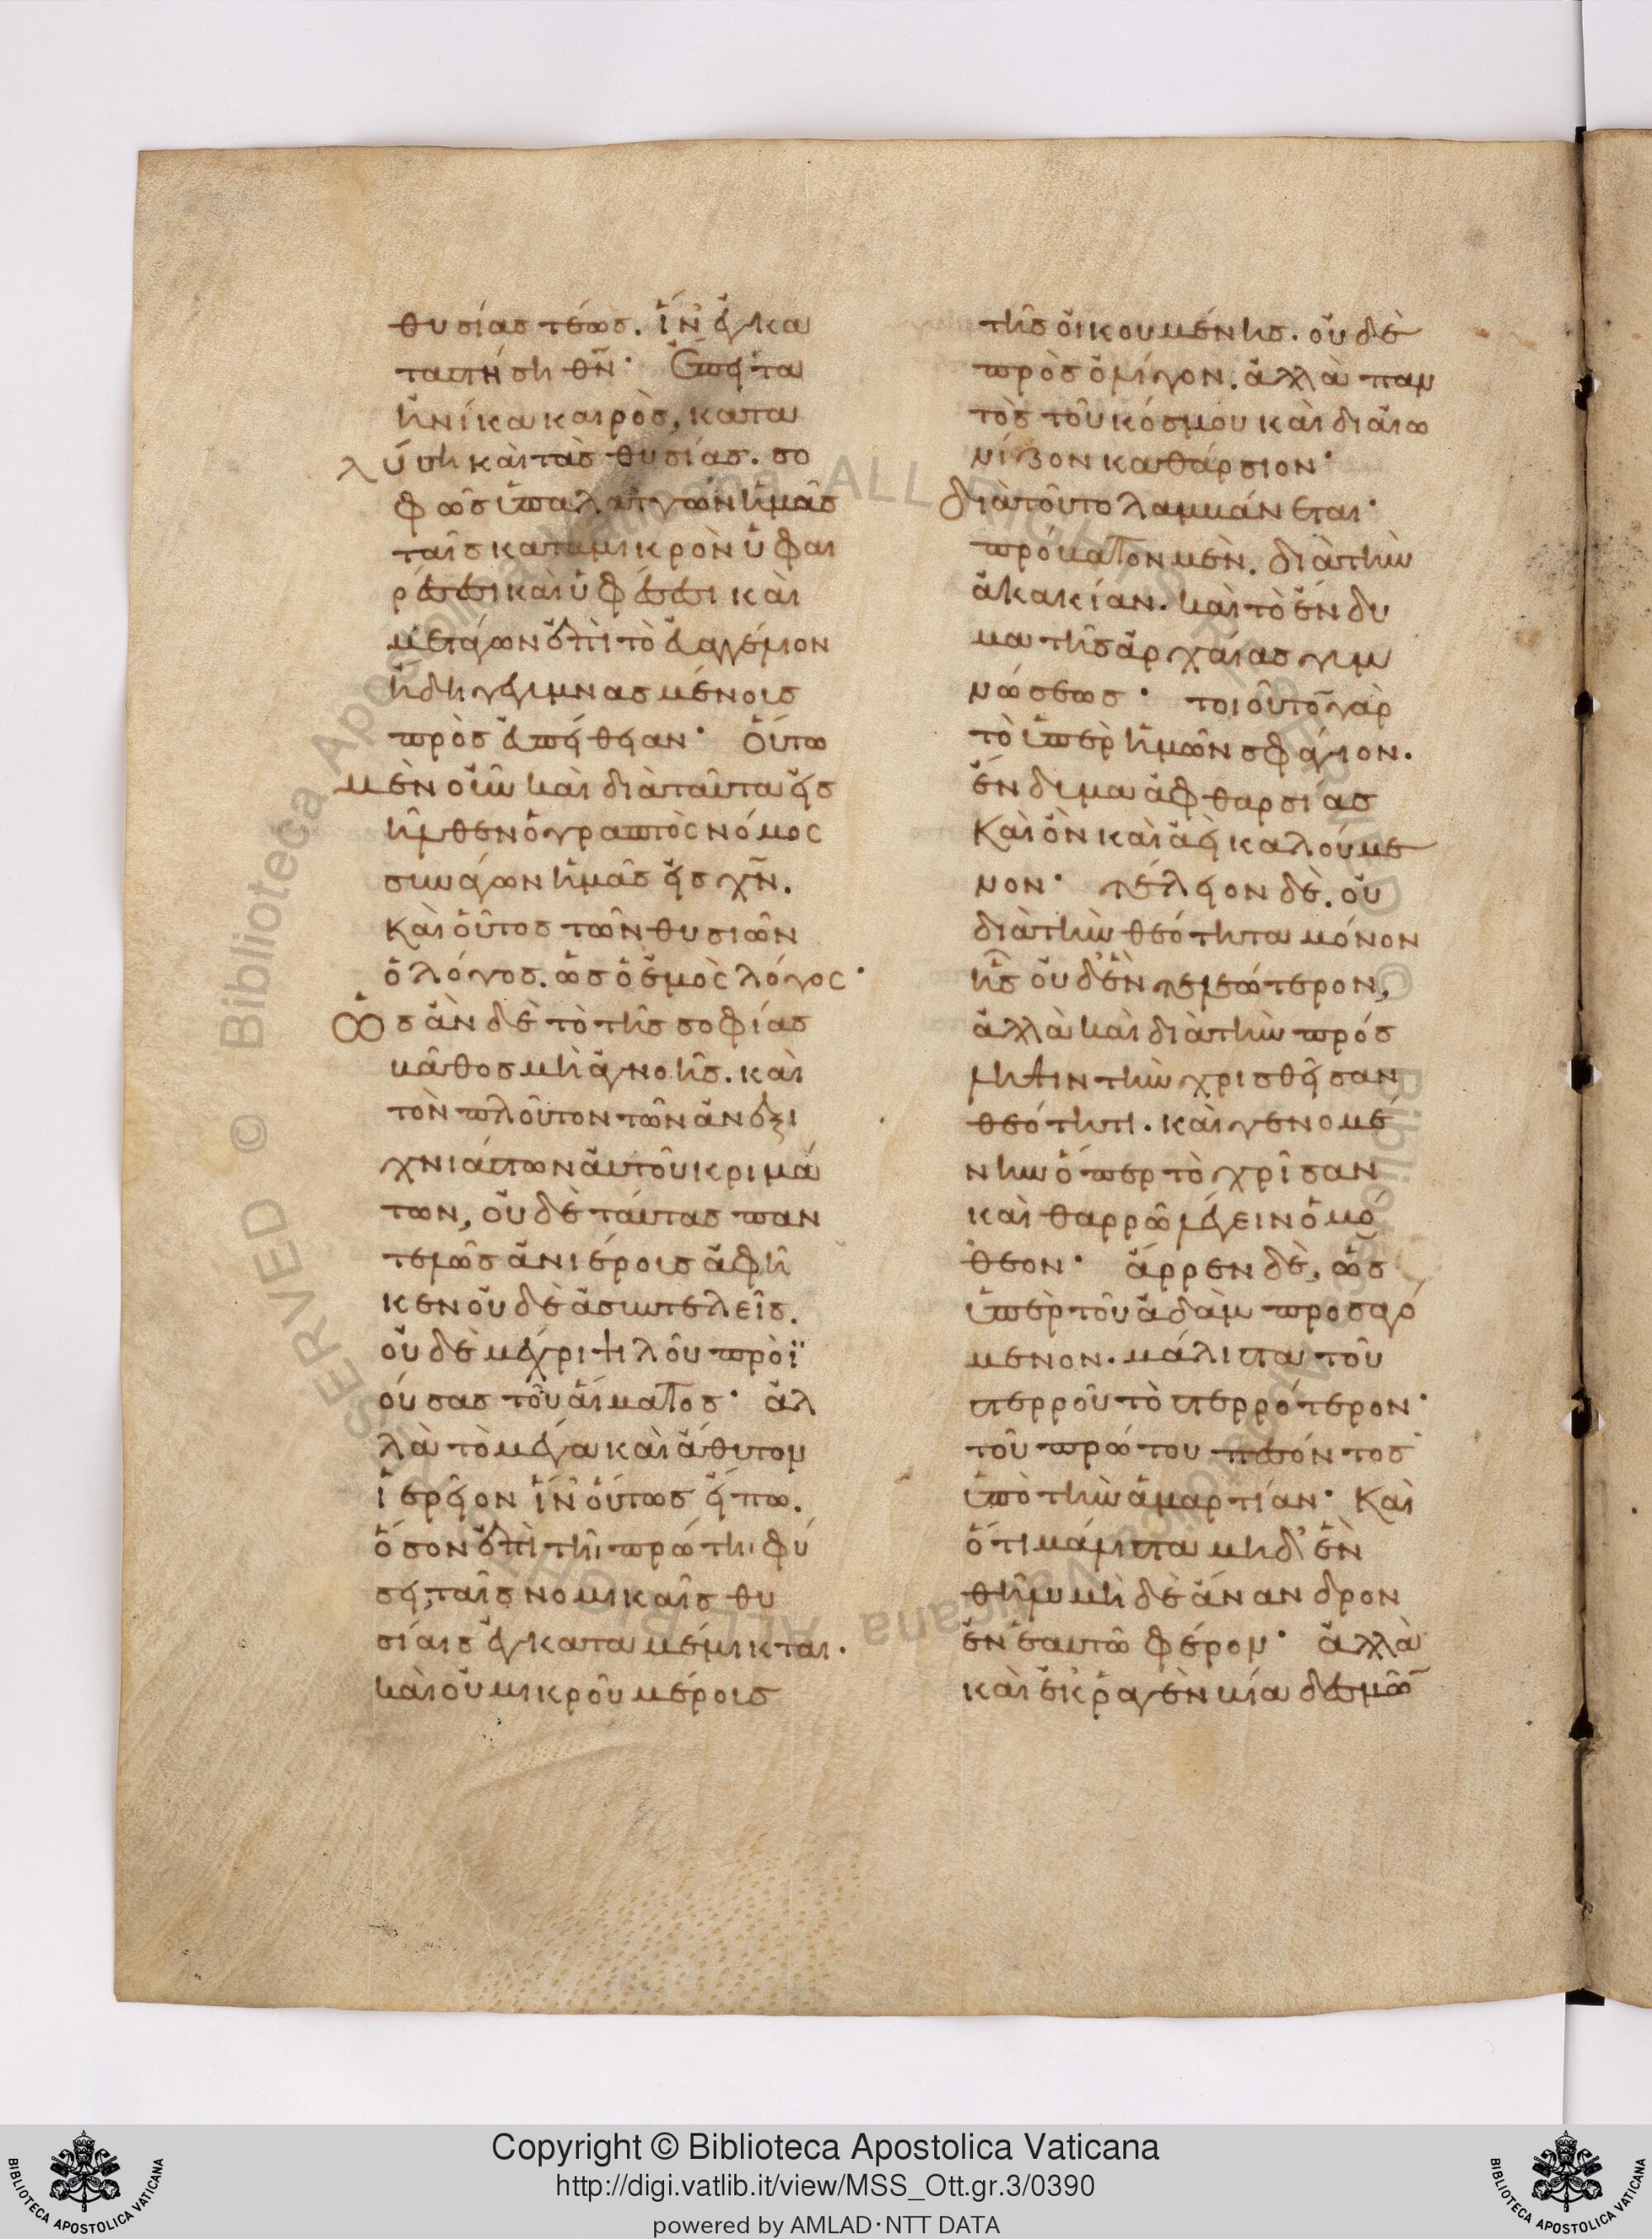 θυσίας τέως. ἵν' ἐγκα
ταστήσῃ θν̄· ἔπειτα
ἡνίκα καιρὸς, κατα
λύσῃ καὶ τὰς θυσίας. σο
φῶς ὑπαλαττων ἡμᾶς
ταῖς κατα μικρὸν ὑφαι
ρέσεσι καὶ ὑφέσεσι καὶ
μετάγων ἐπὶ τὸ εὐαγγέλιον
ἤδη γεγυμνασμένοις
πρὸς εὐπείθειαν· οὕτω
μὲν οὖν καὶ διὰ ταῦτα εἰσ
ῆλθεν ὁ γραπτὸς νόμος
συνάγων ἡμᾶς εἰς χν̄.
καὶ οὗτος τῶν θυσιῶν
ὁ λόγος. ὡς ὁ ἐμὸς λόγος·
ὡς ἂν δὲ τὸ τῆς σοφίας
βάθος μὴ ἀγνοῇς. καὶ
τὸν πλοῦτον τῶν ἀνεξι
χνιάστων αὐτοῦ κριμά
των, οὐδὲ ταύτας παν
τελῶς ἀνιέρους ἀφῆ
κεν οὐδὲ ἀσυντελεῖς.
οὐδὲ μέχρι ψιλοῦ προϊ
ούσας τοῦ αἵματος· ἀλ
λὰ τὸ μέγα καὶ ἄθυτον
ἱερεῖον ἵν' οὕτως εἴπω.
ὅσον ἐπὶ τῇ πρώτῃ φύ
σει, ταῖς νομικαῖς θυ
σίαις ἐγκαταμέμικται.
καὶ οὐ μικροῦ μέρους
τῆς οἰκουμένης. οὐδὲ
πρὸς ὀλίγον. ἀλλὰ παν
τὸς τοῦ κόσμου καὶ διαιω
νίζον καθάρσιον·
διὰ τοῦτο λαμβάνεται·
πρόβατον μὲν. διὰ τὴν
ἀκακίαν. καὶ τὸ ἔνδυ
μα τῆς ἀρχαίας γυμ
νώσεως· τοιοῦτο γὰρ
τὸ ὑπὲρ ἡμῶν σφάγιον.
ἔνδυμα ἀφθαρσίας
καὶ ὂν καὶ ἀεὶ καλούμε
νον· τέλειον δὲ. οὐ
διὰ τὴν θεότητα μόνον
ἧς οὐδὲν τελεώτερον,
ἀλλὰ καὶ διὰ τὴν πρόσ
ληψιν τὴν χρισθεῖσαν
θεότητι. καὶ γενομέ
νην ὅπερ τὸ χρῖσαν
καὶ θαρρῶ λέγειν ὁμό
θεον· ἄρρεν δὲ, ὡς
ὑπὲρ τοῦ ἀδὰμ προσαγό
μενον. μάλιστα τοῦ
στερροῦ τὸ στερρότερον·
τοῦ πρώτου πεσόντος
ὑπὸ τὴν ἁμαρτίαν· καὶ
ὅτι μάλιστα μηδ' ἓν
θῆλυ μὴ δὲ ἄνανδρον
ἐν ἑαυτῶ φέρον· ἀλλὰ
καὶ ἐκραγὲν βία δεσμῶ̄
Copyright © Biblioteca Apostolica Vaticana
http://digi.vatlib.it/view/MSS_Ott.gr.3/0390
powered by AMLAD·NTT DATA